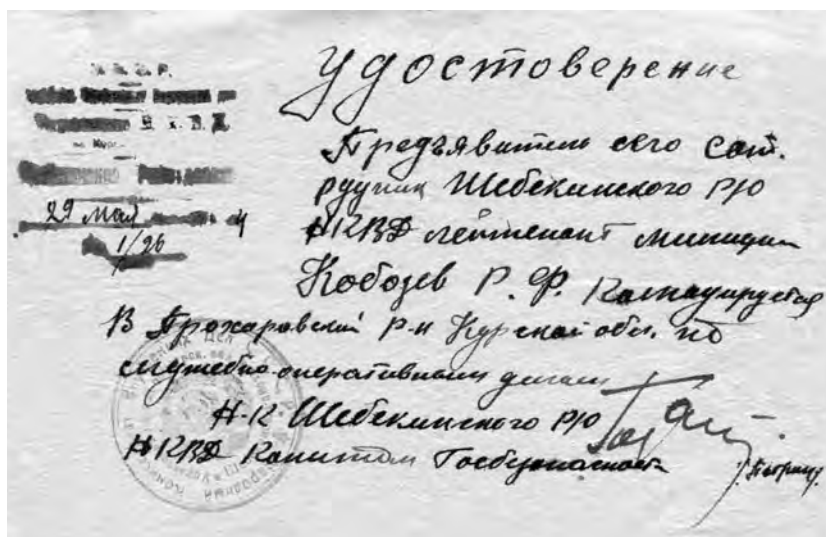 С. С. С. Р.
Управление Н. К. В. Д.
29 мая 4
1/26
Удостоверение
Предъявитель сего сот.
рудник Шебекинского Р/О
НКВД лейтенант милиции
Кобозев Р. Ф. Командируется
В Прохоровский р-н Курской обл. по
служебно-оперативным делам
Н-к Шебекинского Р/О
НКВД Капитан Госбезопасности